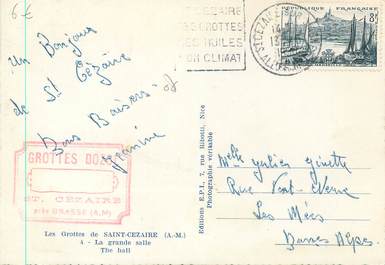 6€
Un Bonjour
de St Cézaire
Bons Baisers
CEZAIRE
GROTTES
HUILES
SON CLIMAT
ST CEZAIRE
REPUBLIQUE FRANÇAISE
8F
GROTTES
ST. CEZAIRE
près GRASSE (A.M)
Les Grottes de SAINT-CEZAIRE (A.-M.)
4 - La grande salle
The hall
Editions E.P.I. 7, rue Ribotti, Nice
Photographie véritable
Melle Julien Ginette
Rue
Les Mées
Basses Alpes